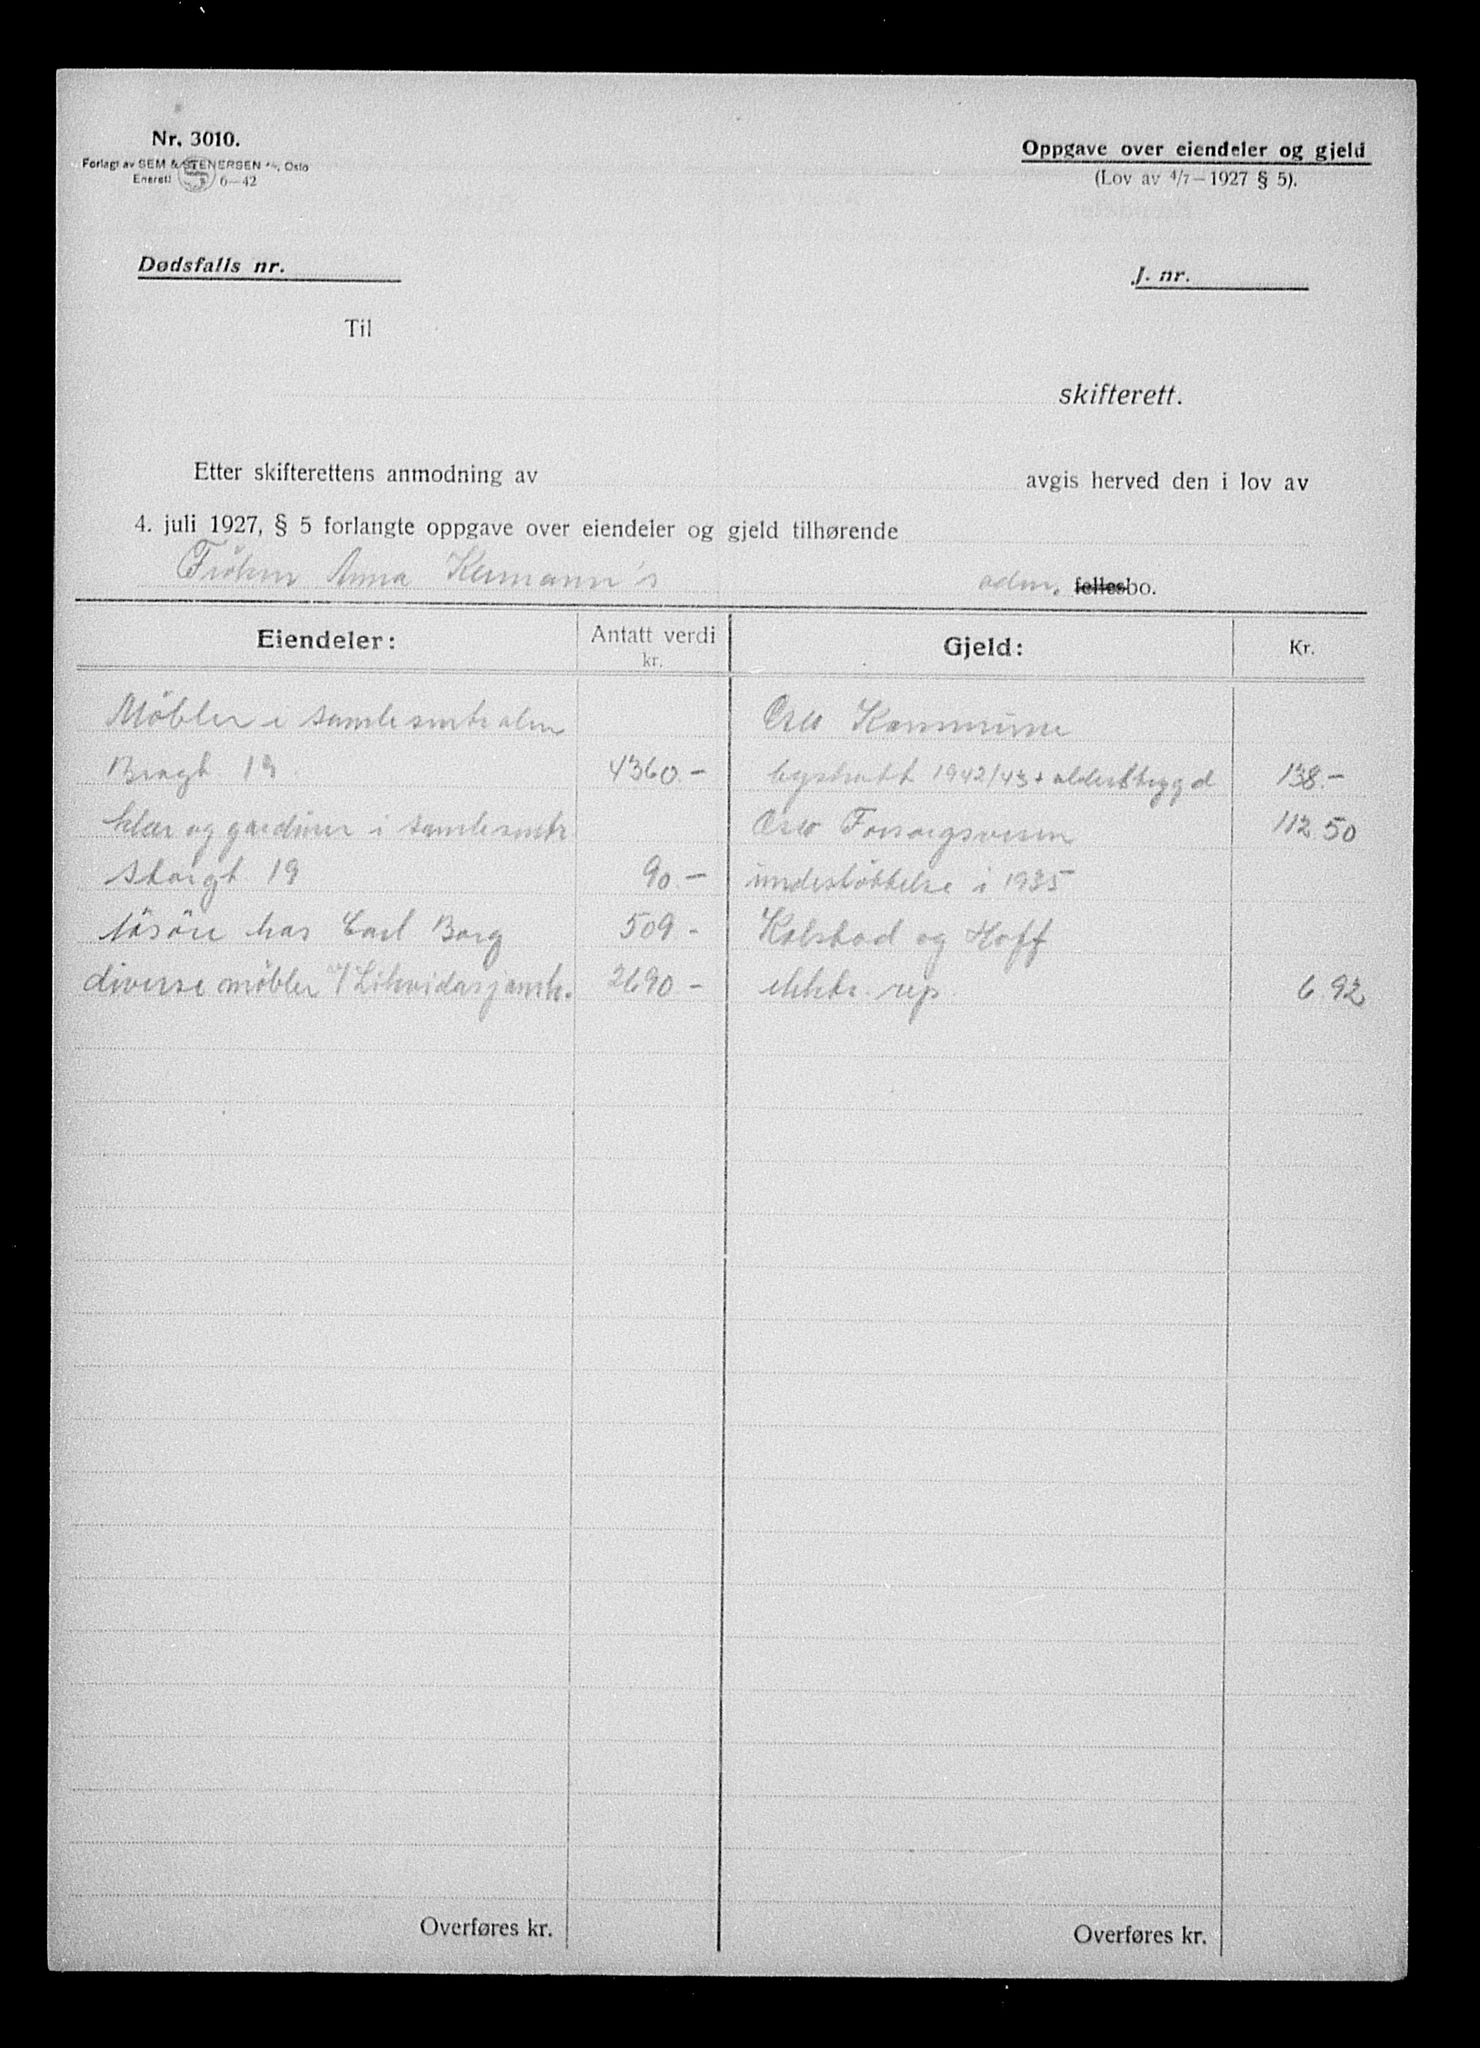 Nr. 3010.
Forlagt av SEM & STENERSEN A/S, Oslo
Enerett 6—42
Oppgave over eiendeler og gjeld
(Lov av 4/7—1927 § 5).
Dødsfalls nr.
J. nr.
Til
skifterett.
Etter skifterettens anmodning av avgis herved den i lov av
4. juli 1927, § 5 forlangte oppgave over eiendeler og gjeld tilhørende
Anna adm. fellesbo.
Eiendeler: Antatt verdi kr. Gjeld: Kr.
Möbler i samlesentralen Oslo Kommune
19 4360.- byskatt 1942/43 + alderstrygd 138.-
klær og gardiner i samlesentr Oslo Forsorgsvesen 112 50
Storgt 19 90.- understöttelse i 1935
lösöre hos Carl Borg 509 - Kolstad og Hoff
diverse möbler Likvidasjonsk. 2690 - elektr. rep. 6.92
Overføres kr. Overføres kr.